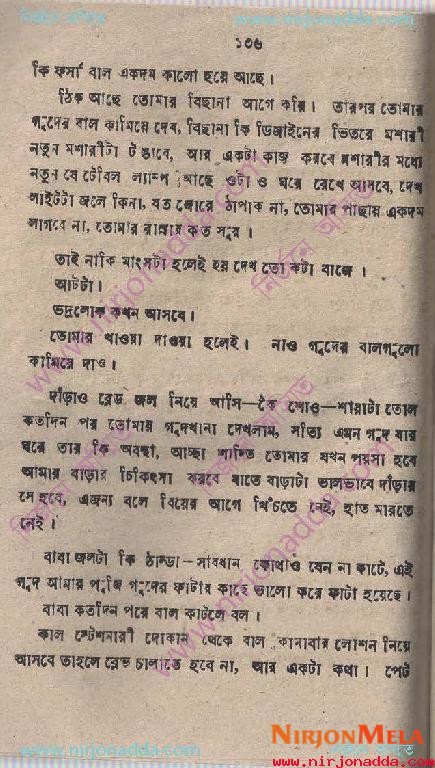 নির্জন মেলায়
www.nirjonadda.com
১৩৬
কি ফর্সা বাল একদম কালো হয়ে আছে।
ঠিক আছে তোমার বিছানা আগে করি। তারপর তোমার
গুদের বাল কামিয়ে দেব, বিছানা কি ডিজাইনের ভিতরে মশারী
নতুন মশারীটা টঙাবে, আর একটা কাজ করবে মশারীর মধ্যে
নতুন যে টেবিল ল্যাম্প আছে ওটা ও ঘরে রেখে আসবে, দেখ
লাইটটা জলে কিনা, যত জোরে ঠাপাক না, তোমার পাছায় একদম
লাগবে না, তোমার রান্নার কত দূর।
তাই নাকি মাংসটা হলেই হয় দেখ তো কটা বাজে।
আটটা।
ভদ্রলোক কখন আসবে।
তোমার খাওয়া দাওয়া হলেই। নাও গুদের বালগুলো
কামিয়ে দাও।
দাঁড়াও ব্লেড জল নিয়ে আসি—কৈ শোও—শায়াটা তোল
কতদিন পর তোমায় গুদখানা দেখলাম, সত্যি এমন গুদ যার
ঘরে তার কি অবস্থা, আচ্ছা তোমার যখন পয়সা হবে
আমার বাড়ার চিকিৎসা করবে যাতে বাড়াটা ভালভাবে দাঁড়ায়
সে হবে, এজন্য বলে বিয়ের আগে খিঁচতে নেই, হাত মারতে
নেই।
বাবা জলটা কি ঠান্ডা—সাবধান কোথাও যেন না কাটে, এই
গুদ আমার পুঁজি গুদের ফাটার কাছে ভালো করে কাটা হয়েছে।
বাবা কতদিন পরে বাল কাটলে বল।
কাল স্টেশনারী দোকান থেকে বাল কামাবার লোশন নিয়ে
আসবে তাহলে ব্লেড চালাতে হবে না, আর একটা কথা। পেট
NIRJONMELA
www.nirjonadda.com
www.nirjonadda.com